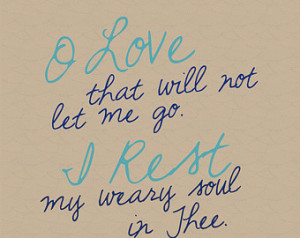 O Love
that will not
let me go.
I Rest
my weary soul
in Thee.